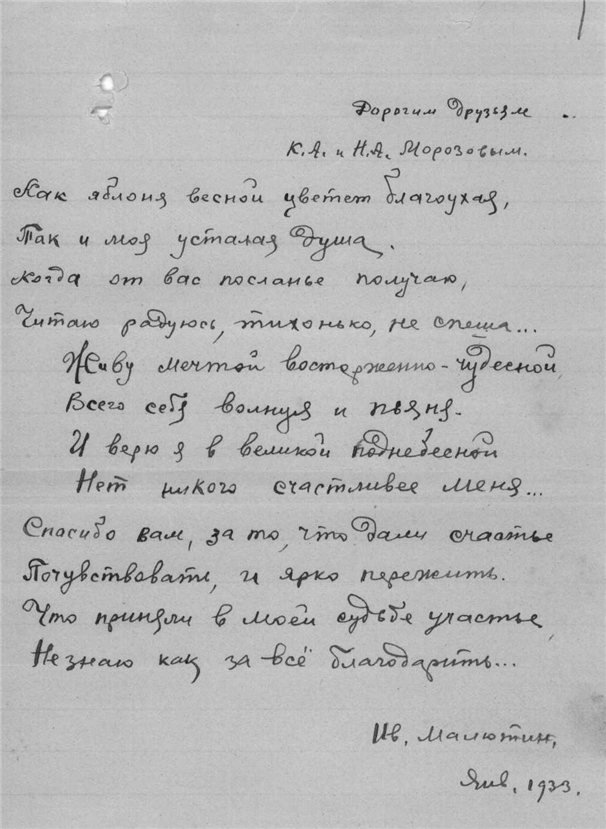 Дорогим Друзьям
К.А. и Н.А. Морозовым.
Как яблоня весной цветет благоухая,
Так и моя усталая душа.
Когда от вас посланье получаю,
Читаю радуюсь, тихонько, не спеша...
Живу мечтой восторженно-чудесной,
Всего себя волнуя и пьяня.
И верю я в великой поднебесной
Нет никого счастливее меня...
Спасибо вам, за то, что дали счастье
Почувствовать, и ярко пережить.
Что приняли в моей судьбе участье,
Не знаю как за всё благодарить...
Ив. Малютин.
Янв. 1933.